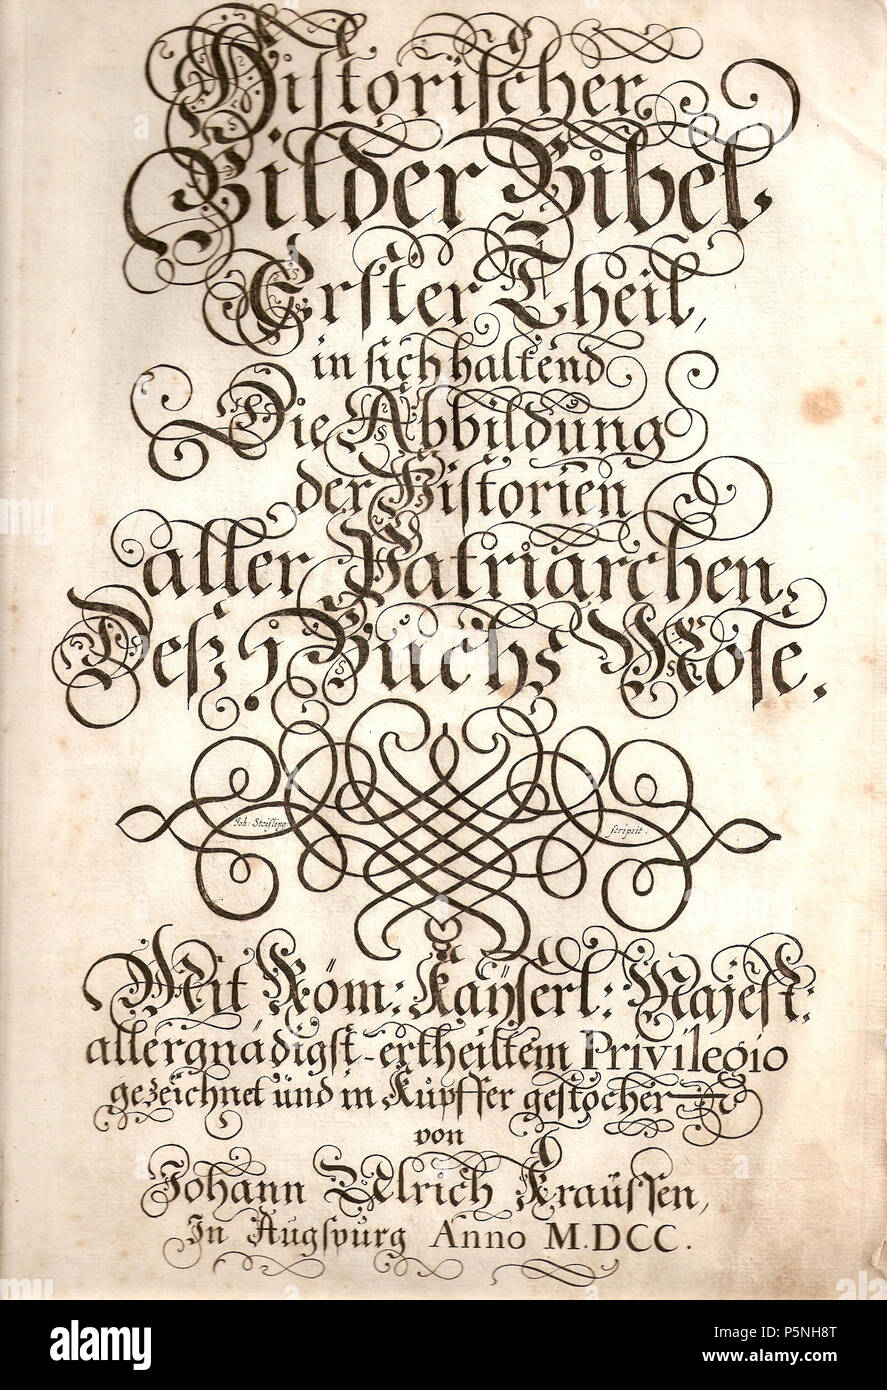 Historischer
Bilder Bibel.
Erster Theil,
in sich haltend
Die Abbildung
der Historien
aller Patriarchen,
Desz j Buchs Mose.
Joh: Steisling scripsit.
Mit Röm: Kaÿserl: Majest:
allergnädigst-ertheiltem Privilegio
gezeichnet und in Kupffer gestochen
von
Johann Ulrich Kraussen,
In Augspurg Anno M.DCC.
alamy
Image ID: P5NH8T
www.alamy.com